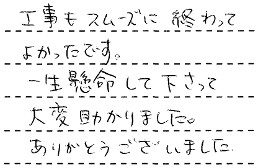 工事もスムーズに終わって
よかったです。
一生懸命して下さって
大変助かりました。
ありがとうございました.